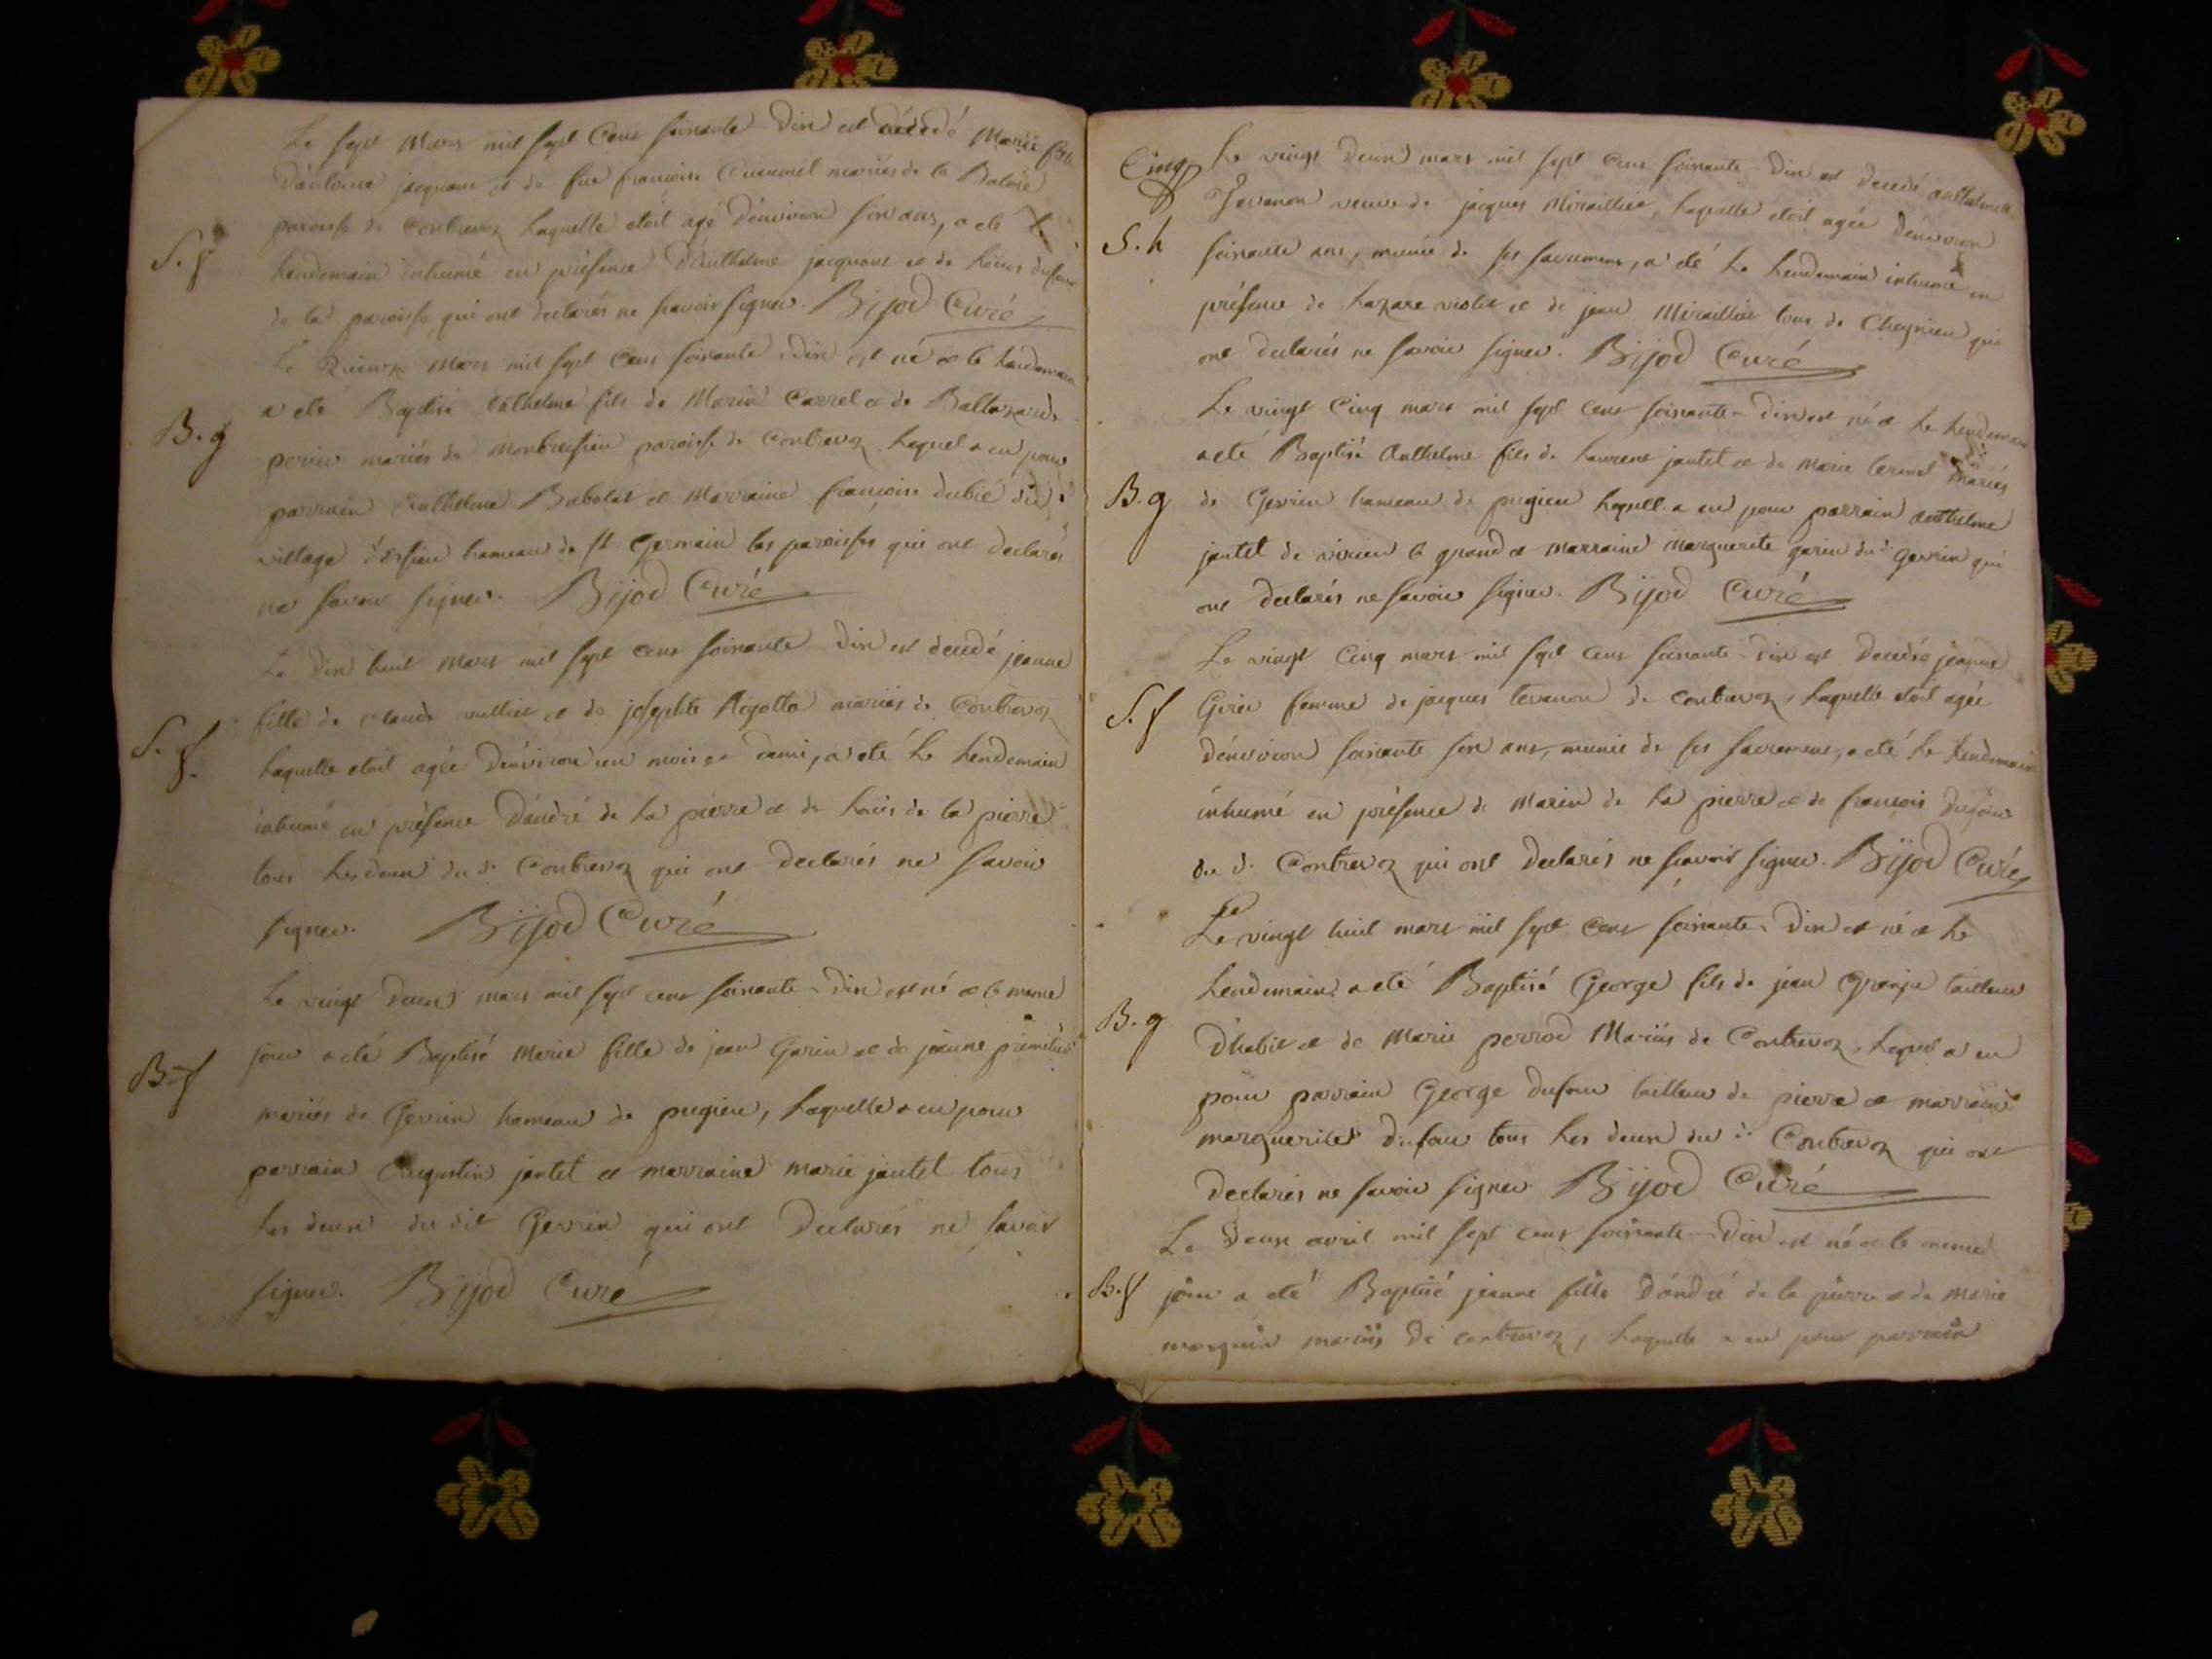 Le sept Mars mil sept cens soixante-dix est décédé Marie fille
d'antoine jacquam et de fue francoise mariés de la Balme
paroisse de Contrevoz laquelle etoit agé d'environ six ans, a eté le
S. f
lendemain inhumé en présence d'anthelme jacquam et de dufour
de lad. paroisse qui ont declarés ne scavoir signer. Bijod Curé
Le quinze Mars mil sept cens soixante-dix est né et le lendemain
a eté Baptisé anthelme fils de Marin Carrel et de Baltazarde
B. g
perier mariés de Montbressieu paroisse de Contrevoz lequel a eu pour
parrain anthelme Babolat et Marraine francoise dubié du
village d'Essieu hameau de St. Germain les paroisses qui ont declarés
ne savoir signer. Bijod Curé
Le dix huit Mars mil sept cens soixante-dix est decedé jeanne
fille de claude vullier et de josephte Rigotto mariés de Contrevoz
S. f.
laquelle etoit agée d'environ un mois et demi, a eté le lendemain
inhumé en présence d'andré de la pierre et de de la pierre
tous les deux du d. Contrevoz qui ont declarés ne savoir
signer. Bijod Curé
Le vingt deux mars mil sept cens soixante-dix est né et le meme
jour a eté Baptisé Marie fille de jean Garin et de jeanne
B. f
mariés de Gevrin hameau de pugieu, laquelle a eu pour
parrain Augustin jantet et marraine marie jantet tous
les deux du dit Gevrin qui ont declarés ne savoir
signer. Bijod Curé
Cinq
Le vingt deux mars mil sept cens soixante-dix est decedé anthelmette
Tevenon veuve de jacques Miraillier, laquelle etoit agée d'environ
S. h
soixante ans, munie de ses sacremens, a eté le lendemain inhumé en
présence de lazare violet et de jean Miraillier tous de Cheignieu qui
ont declarés ne savoir signer. Bijod Curé
Le vingt Cinq mars mil sept cens soixante-dix est né et le lendemain
a eté Baptisé Anthelme fils de laurent jantet et de Marie mariés
B. g
de Gevrin hameau de pugieu lequell a eu pour parrain anthelme
jantet de virieu le grand et marraine marguerite garin du d. Gevrin qui
ont declarés ne savoir signer. Bijod Curé
Le vingt Cinq mars mil sept cens soixante-dix est decedée jeanne
S. f
Girer femme de jacques tevenon de contrevoz, laquelle etoit agée
d'environ soixante six ans, munie de ses sacremens, a eté le lendemain
inhumé en présence de Marin de la pierre et de françois dufour
du d. Contrevoz qui ont declarés ne scavoir signer. Bijod Curé
Le vingt huit mars mil sept cens soixante-dix est né et le
lendemain a eté Baptisé George fils de jean tailleur
B. g
d'habit et de Marie perrod Mariés de Contrevoz, lequel a eu
pour parrain George dufour tailleur de pierre et marraine
marguerite dufour tous les deux du d. Contrevoz qui ont
declarés ne savoir signer. Bijod Curé
Le deux avril mil sept cens soixante-dix est né et le meme
B. f
jour a eté Baptisé jeanne fille d'andré de la pierre et de Marie
marguin mariés de contrevoz, laquelle a eu pour parrain